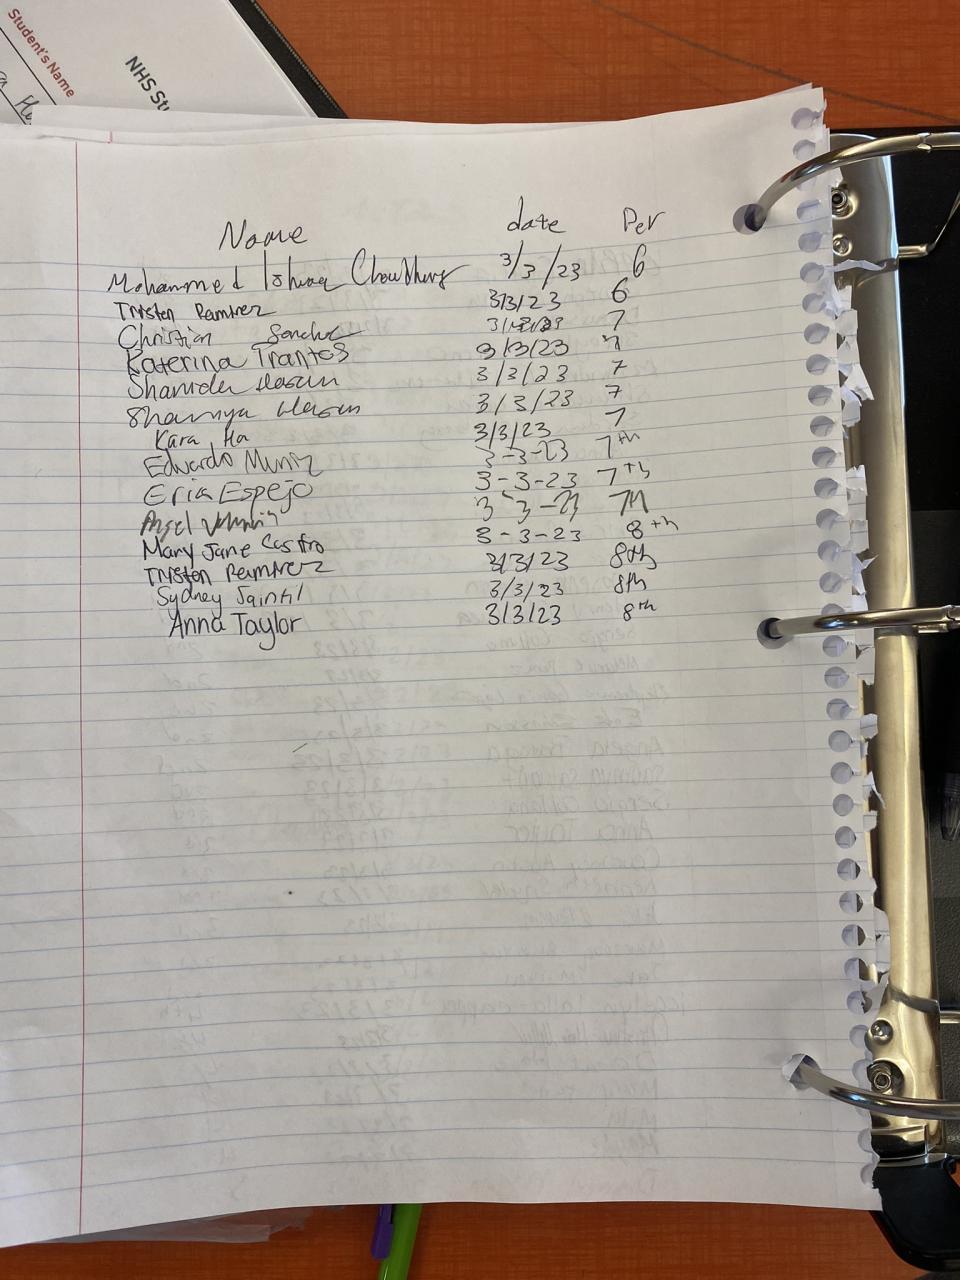 Student's Name
NHS Stu
Name date Per
Mohammed Ishraq Choudhury 3/3/23 6
Tristen Ramirez 3/3/23 6
Christian Sanchez 3/3/23 7
Katerina Trantos 3/3/23 7
Shamida Hasan 3/3/23 7
Shamya Hasan 3/3/23 7
Kara Ha 3/3/23 7
Edwardo Muniz 3-3-23 7th
Eria Espejo 3-3-23 7th
Angel 3-3-23 7th
Mary Jane Castro 3-3-23 8th
Tristen Ramirez 3/3/23 8th
Sydney Saintil 3/3/23 8th
Anna Taylor 3/3/23 8th